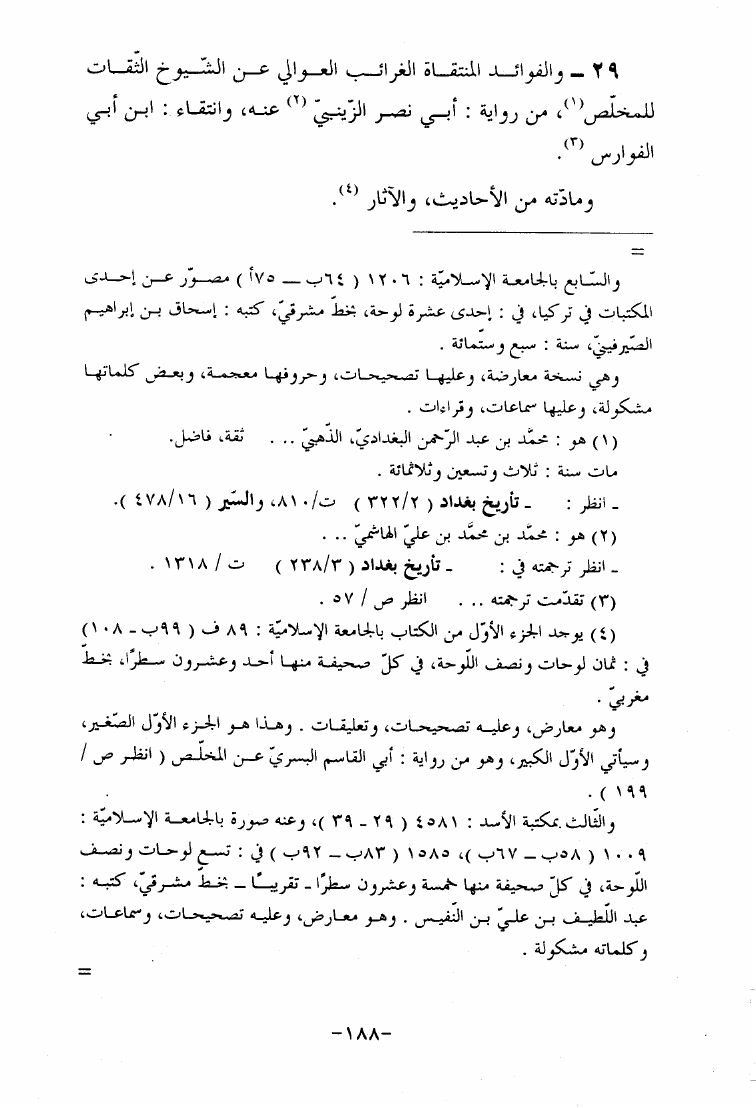 ٢٩ – والفوائد المنتقاة الغرائب العوالي عن الشّيوخ الثّقات
للمخلّص(١)، من رواية : أبي نصر الزّينبيّ (٢) عنه، وانتقاء : ابن أبي
الفوارس (٣).
ومادّته من الأحاديث، والآثار (٤).
=
والسّابع بالجامعة الإسلاميّة : ١٢٠٦ ( ٦٤ب — ٧٥أ ) مصوّر عن إحدى
المكتبات في تركيا، في : إحدى عشرة لوحة، بخطّ مشرقيّ، كتبه : إسحاق بن إبراهيم
الصّيرفينيّ، سنة : سبع وستّمائة .
وهي نسخة معارضة، وعليها تصحيحات، وحروفها معجمة، وبعض كلماتها
مشكولة، وعليها سماعات، وقراءات .
(١) هو : محمّد بن عبد الرّحمن البغداديّ، الذّهبيّ ... . ثقة، فاضل.
مات سنة : ثلاث وتسعين وثلاثمائة .
ـ انظر : ـ تأريخ بغداد ( ٣٢٢/٢ ) ت/٨١٠، والسّير ( ٤٧٨/١٦ ).
(٢) هو : محمّد بن محمّد بن عليّ الهاشميّ ... .
ـ انظر ترجمته في : ـ تأريخ بغداد ( ٢٣٨/٣ ) ت / ١٣١٨ .
(٣) تقدّمت ترجمته ... . انظر ص / ٥٧ .
(٤) يوجد الجزء الأوّل من الكتاب بالجامعة الإسلاميّة : ٨٩ ف ( ٩٩ب ـ ١٠٨)
في : ثمان لوحات ونصف اللّوحة، في كلّ صحيفة منها أحد وعشرون سطرًا، بخطّ
مغربيّ .
وهو معارض، وعليه تصحيحات، وتعليقات . وهذا هو الجزء الأوّل الصّغير،
وسيأتي الأوّل الكبير، وهو من رواية : أبي القاسم البسريّ عن المخلّص ( انظر ص /
١٩٩ ) .
والثّالث بمكتبة الأسد : ٤٥٨١ ( ٢٩ ـ ٣٩ )، وعنه صورة بالجامعة الإسلاميّة :
١٠٠٩ ( ٥٨ب — ٦٧ب )، ١٥٨٥ ( ٨٣ب — ٩٢ب ) في : تسع لوحات ونصف
اللّوحة، في كلّ صحيفة منها خمسة وعشرون سطرًا ـ تقريبًا ـ بخطّ مشرقيّ، كتبه :
عبد اللّطيف بن عليّ بن النّفيس . وهو معارض، وعليه تصحيحات، وسماعات،
وكلماته مشكولة .
=
–١٨٨–